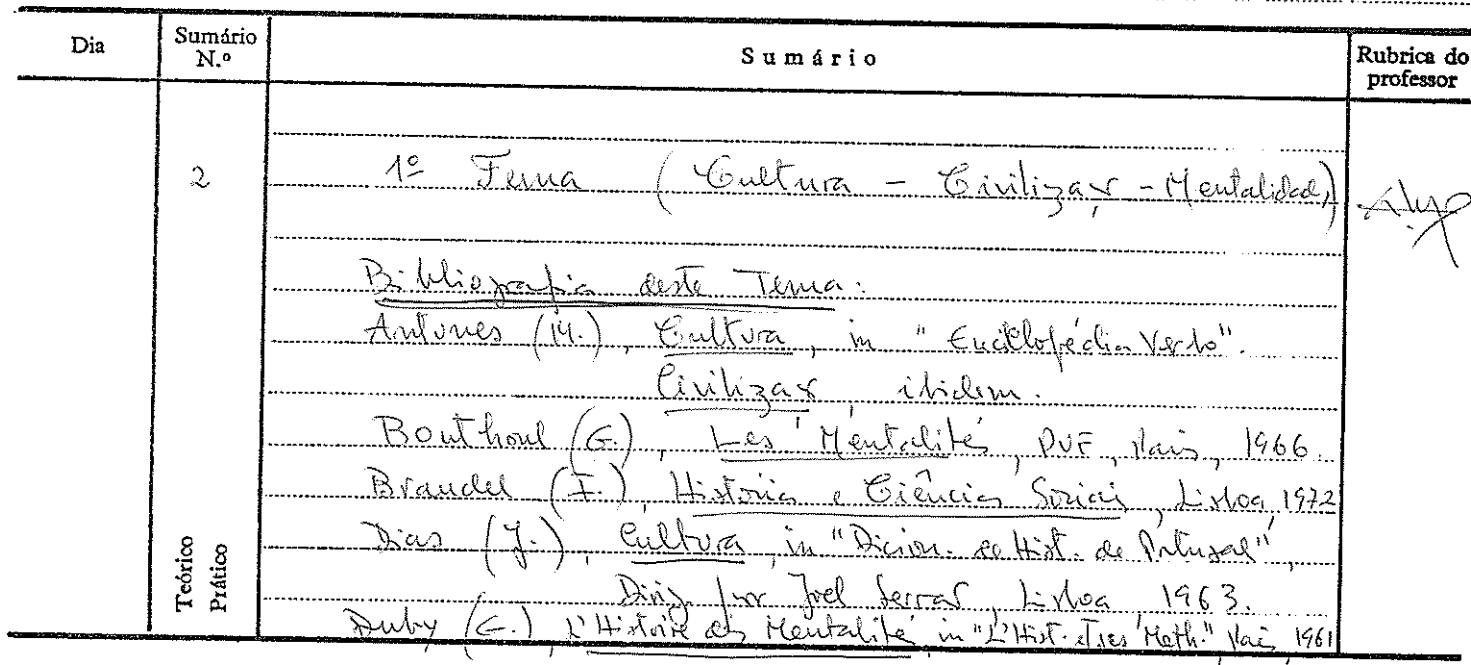 Dia
Sumário N.º
Sumário
Rubrica do professor
2
1º Tema (Cultura - Civilização - Mentalidade)
Bibliografia deste Tema:
Antunes (M.), Cultura, in "Enciclopédia Verbo".
Civilização, ibidem.
Bouthoul (G.), Les Mentalités, PUF, Paris, 1966.
Braudel (F.), História e Ciências Sociais, Lisboa, 1972
Dias (J.), Cultura, in "Dicion. de Hist. de Portugal",
Dirig. por Joel Serrão, Lisboa, 1963.
Duby (G.) L'Histoire des Mentalités in "L'Hist. et ses Méth." Paris, 1961
Teórico
Prático